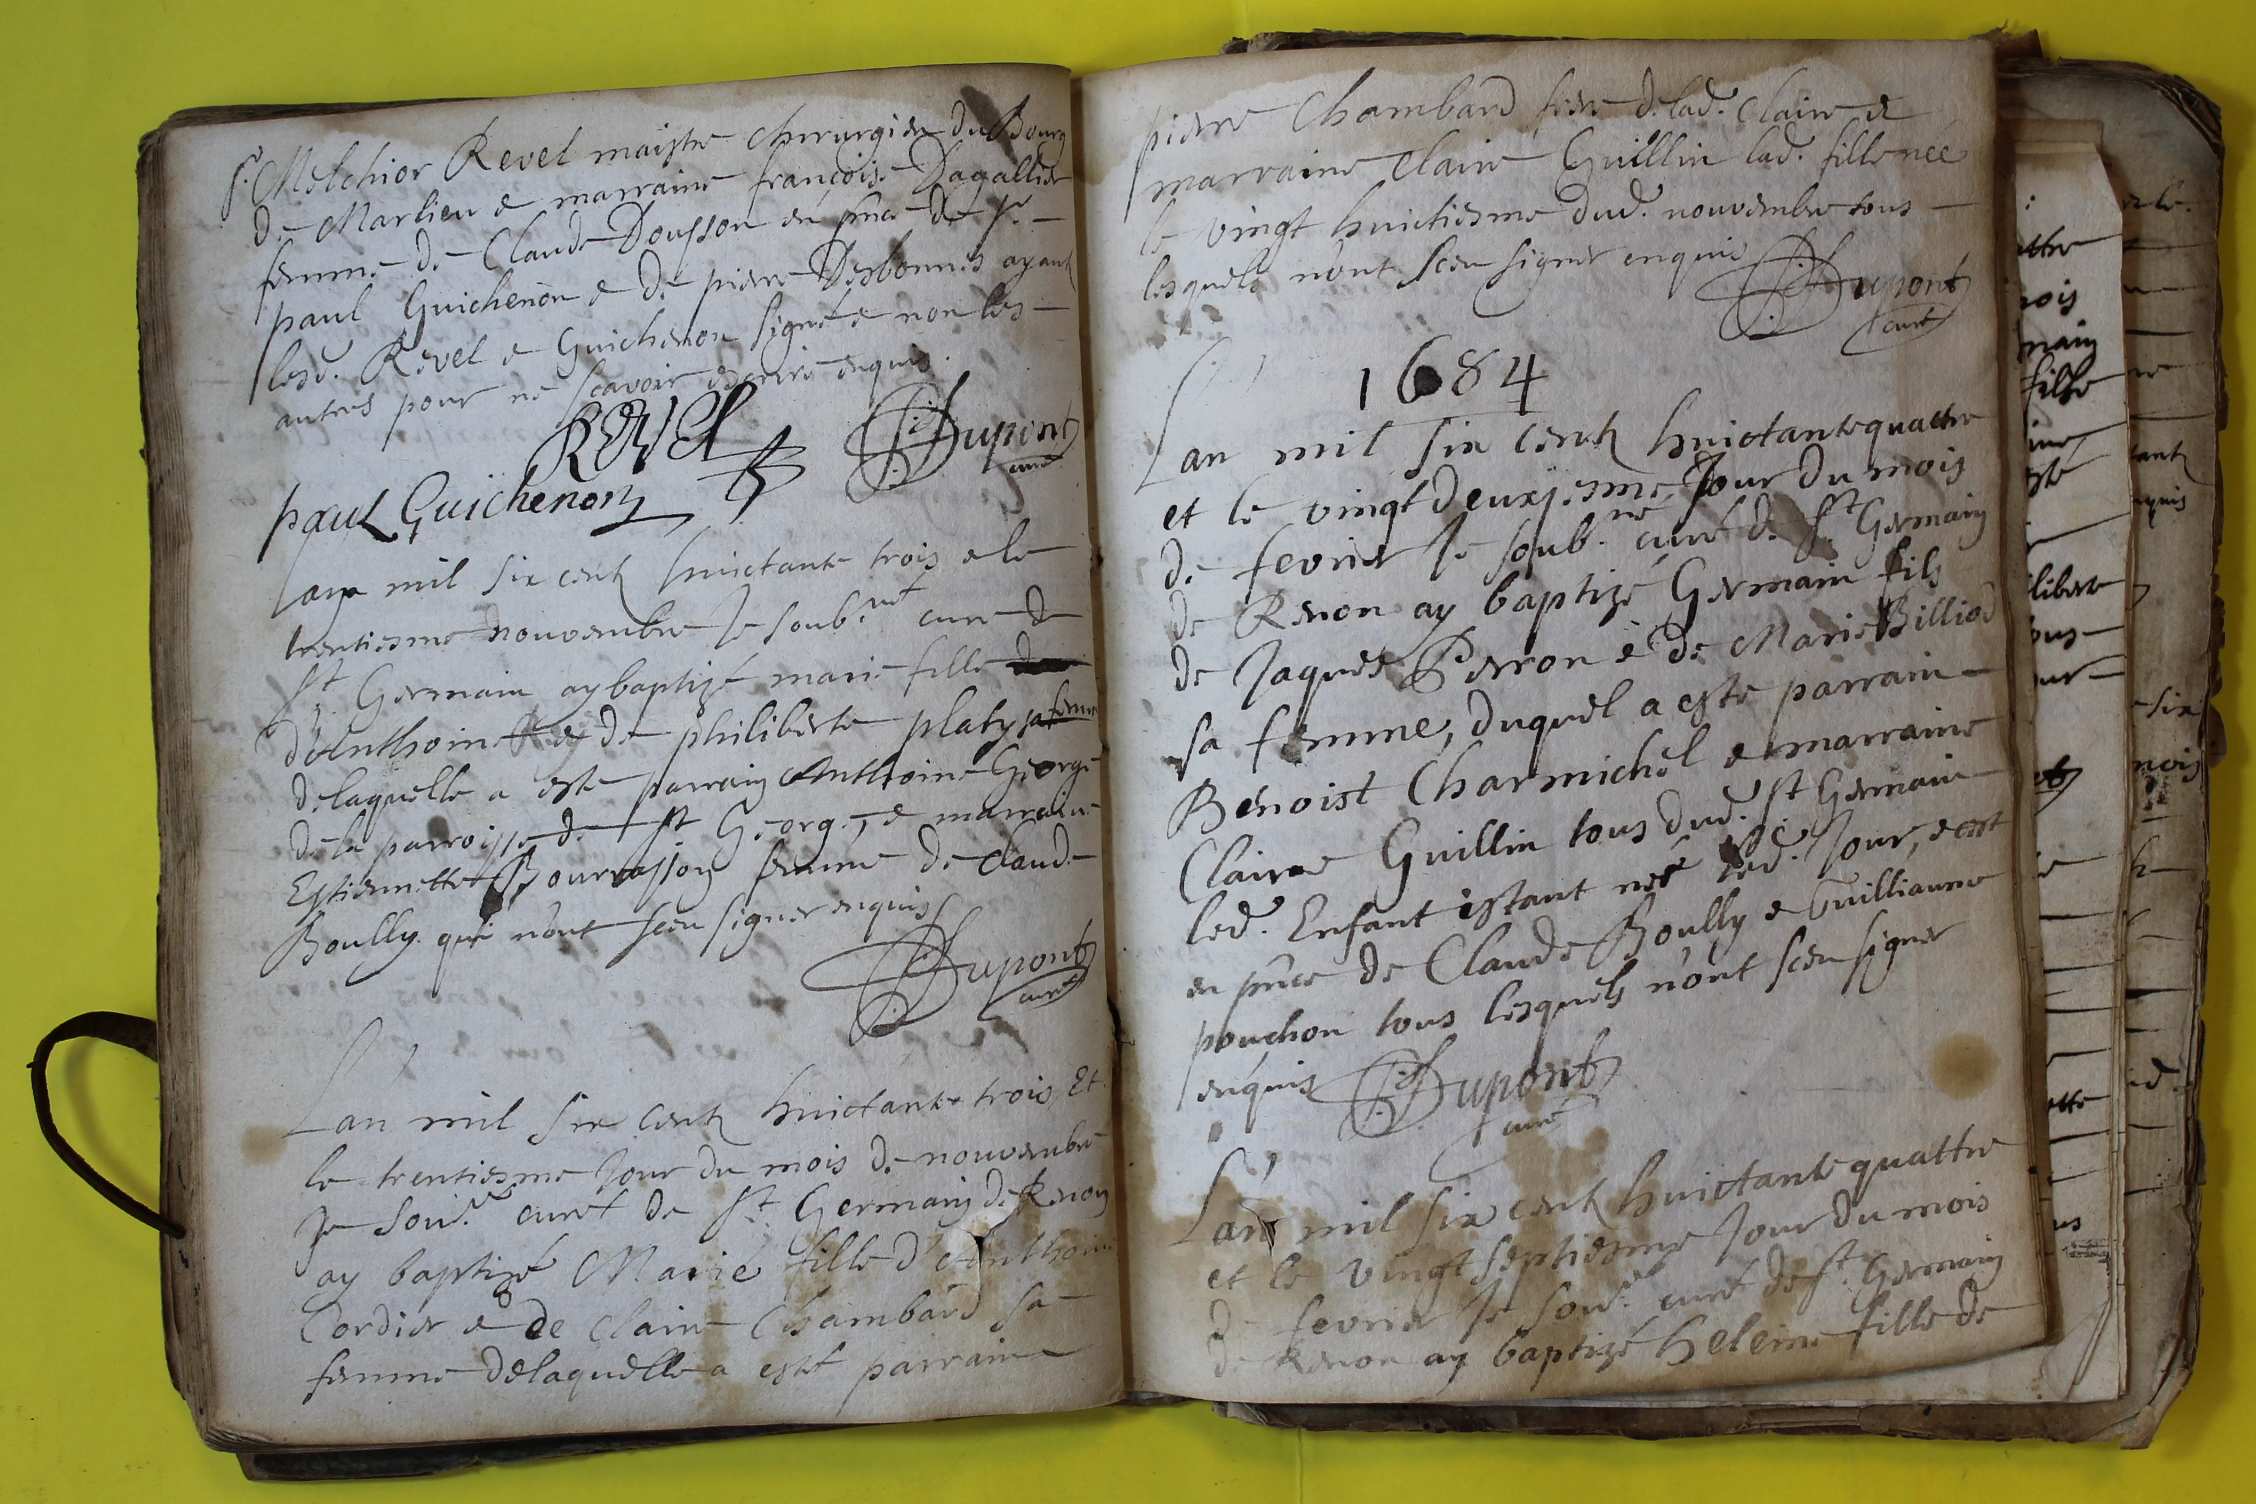 Sr. Melchior Revel maistre chirurgien du Bourg
de Marlieu e marraine françoise Dagallier
femme de Claude Dousson en pnce de Sr
paul Guichenon e de pierre Desbonnes ayant
lesd. Revel e Guichenon signé e non les
autres pour ne scavoir escrire enquis.
REVEL
Dupont
curé
paul Guichenon
Lan mil six cent huictante trois e le
trentiesme nouvembre Je soub.né curé de
St Germain ay baptizé marie fille
d'Anthoine e de philiberte platy sa femme
delaquelle a este parrain Anthoine George
de la parroisse de St George, e marraine
Estiennette Bourrasson femme de Claude
Boully qui n'ont sceu signer enquis
Dupont
curé
Lan mil six cent huictante trois Et
le trentiesme Jour du mois de nouvembre
Je sou.né curé de St Germain de Renon
ay baptizé Marie fille d'Anthoine
Cordier e de Claire Chambard sa
femme delaquelle a esté parrain
pierre Chambard frere de lad. Claire e
marraine Claire Guillin lad. fille née
le vingt huictiesme dud. nouvembre tous
lesquels n'ont sceu signer enquis
Dupont
curé
1684
Lan mil six cent huictante quattre
et le vingt deuxiesme Jour du mois
de fevrier Je soub.né curé de St Germain
de Renon ay baptizé Germain fils
de Jaques Perron e de Marie Billiod
sa femme, duquel a esté parrain
Benoist Charmichel e marraine
Claire Guillin tous dud. St Germain
led. Enfant estant né led. Jour, e est
en pnce de Claude Boully e Guilliaume
pouchon tous lesquels n'ont sceu signer
enquis Dupont
curé
Lan mil six cent huictante quattre
et le vingt septiesme Jour du mois
de fevrier Je sou.né curé de St. Germain
de Renon ay baptizé heleine fille de